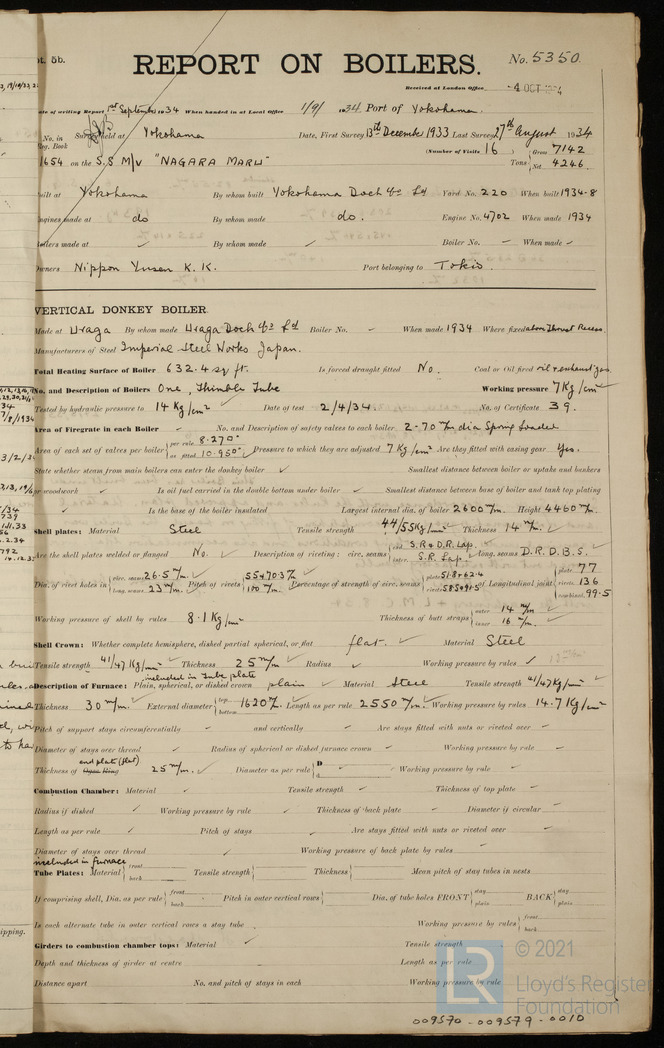 REPORT ON BOILERS.
No. 5350.
Received at London Office 4 OCT
Date of writing Report 1st September 1934 When handed in at Local Office 1/9/ 1934 Port of Yokohama.
No. in Reg. Book Survey held at Yokohama Date, First Survey 13th December 1933 Last Survey 27th August 1934
(Number of Visits 16
1654 on the S.S M/V "NAGARA MARU" Tons Gross 7142 Net 4246.
Built at Yokohama By whom built Yokohama Dock Co Ld Yard No. 220 When built 1934-8
Engines made at do By whom made do. Engine No. 4702 When made 1934
Boilers made at ✓ By whom made ✓ Boiler No. – When made ✓
Owners Nippon Yusen K. K. Port belonging to Tokio.
VERTICAL DONKEY BOILER.
Made at Uraga By whom made Uraga Dock Co Ld Boiler No. – When made 1934 Where fixed above Thrust Recess.
Manufacturers of Steel Imperial Steel Works Japan.
Total Heating Surface of Boiler 632.4 sq ft. Is forced draught fitted No. Coal or Oil fired oil & exhaust gas.
No. and Description of Boilers One, Thimble Tube Working pressure 7 Kg/cm²
Tested by hydraulic pressure to 14 Kg/cm² Date of test 2/4/34 No. of Certificate 39.
Area of Firegrate in each Boiler – No. and Description of safety valves to each boiler 2-70 m/m dia Spring Loaded
Area of each set of valves per boiler per rule 8.27 as fitted 10.95 Pressure to which they are adjusted 7 Kg/cm² Are they fitted with easing gear Yes.
State whether steam from main boilers can enter the donkey boiler ✓ Smallest distance between boiler or uptake and bunkers
or woodwork ✓ Is oil fuel carried in the double bottom under boiler ✓ Smallest distance between base of boiler and tank top plating
✓ Is the base of the boiler insulated Largest internal dia. of boiler 2600 m/m. Height 4460 m/m.
Shell plates: Material Steel Tensile strength 44/55 Kg/mm² Thickness 14 m/m.
Are the shell plates welded or flanged No. Description of riveting: circ. seams end S.R & D.R. Lap. inter. S.R. Lap. long. seams D.R.D.B.S.
Dia. of rivet holes in circ. seams 26.5 m/m. long. seams 23 m/m. Pitch of rivets Percentage of strength of circ. seams plate 51.8 & 62.4 rivets of Longitudinal joint plate 77 rivets 136 combined 99.5
Working pressure of shell by rules 8.1 Kg/cm² Thickness of butt straps outer 14 m/m inner 16 m/m.
Shell Crown: Whether complete hemisphere, dished partial spherical, or flat flat. Material Steel
Tensile strength 41/47 Kg/mm² Thickness 25 m/m Radius ✓ Working pressure by rules ✓
included in tube plate
Description of Furnace: Plain, spherical, or dished crown plain Material Steel Tensile strength 41/47 Kg/mm²
Thickness 30 m/m. External diameter top bottom 1620 m/m. Length as per rule 2550 m/m. Working pressure by rules 14.7 Kg/cm²
Pitch of support stays circumferentially ✓ and vertically ✓ Are stays fitted with nuts or riveted over ✓
Diameter of stays over thread ✓ Radius of spherical or dished furnace crown ✓ Working pressure by rule ✓
end plate (flat)
Thickness of Ogee Ring 25 m/m. Diameter as per rule D ✓ Working pressure by rule ✓
Combustion Chamber: Material ✓ Tensile strength ✓ Thickness of top plate ✓
Radius if dished ✓ Working pressure by rule ✓ Thickness of back plate ✓ Diameter if circular ✓
Length as per rule ✓ Pitch of stays ✓ Are stays fitted with nuts or riveted over ✓
Diameter of stays over thread ✓ Working pressure of back plate by rules ✓
included in furnace
Tube Plates: Material front back Tensile strength Thickness Mean pitch of stay tubes in nests
If comprising shell, Dia. as per rule front back Pitch in outer vertical rows Dia. of tube holes FRONT stay plain BACK stay plain
Is each alternate tube in outer vertical rows a stay tube Working pressure by rules front back
Girders to combustion chamber tops: Material ✓ Tensile strength
Depth and thickness of girder at centre Length as per rule
Distance apart No. and pitch of stays in each Working pressure by rule
© 2021
LR
Lloyd's Register
Foundation
009570-009579-0010